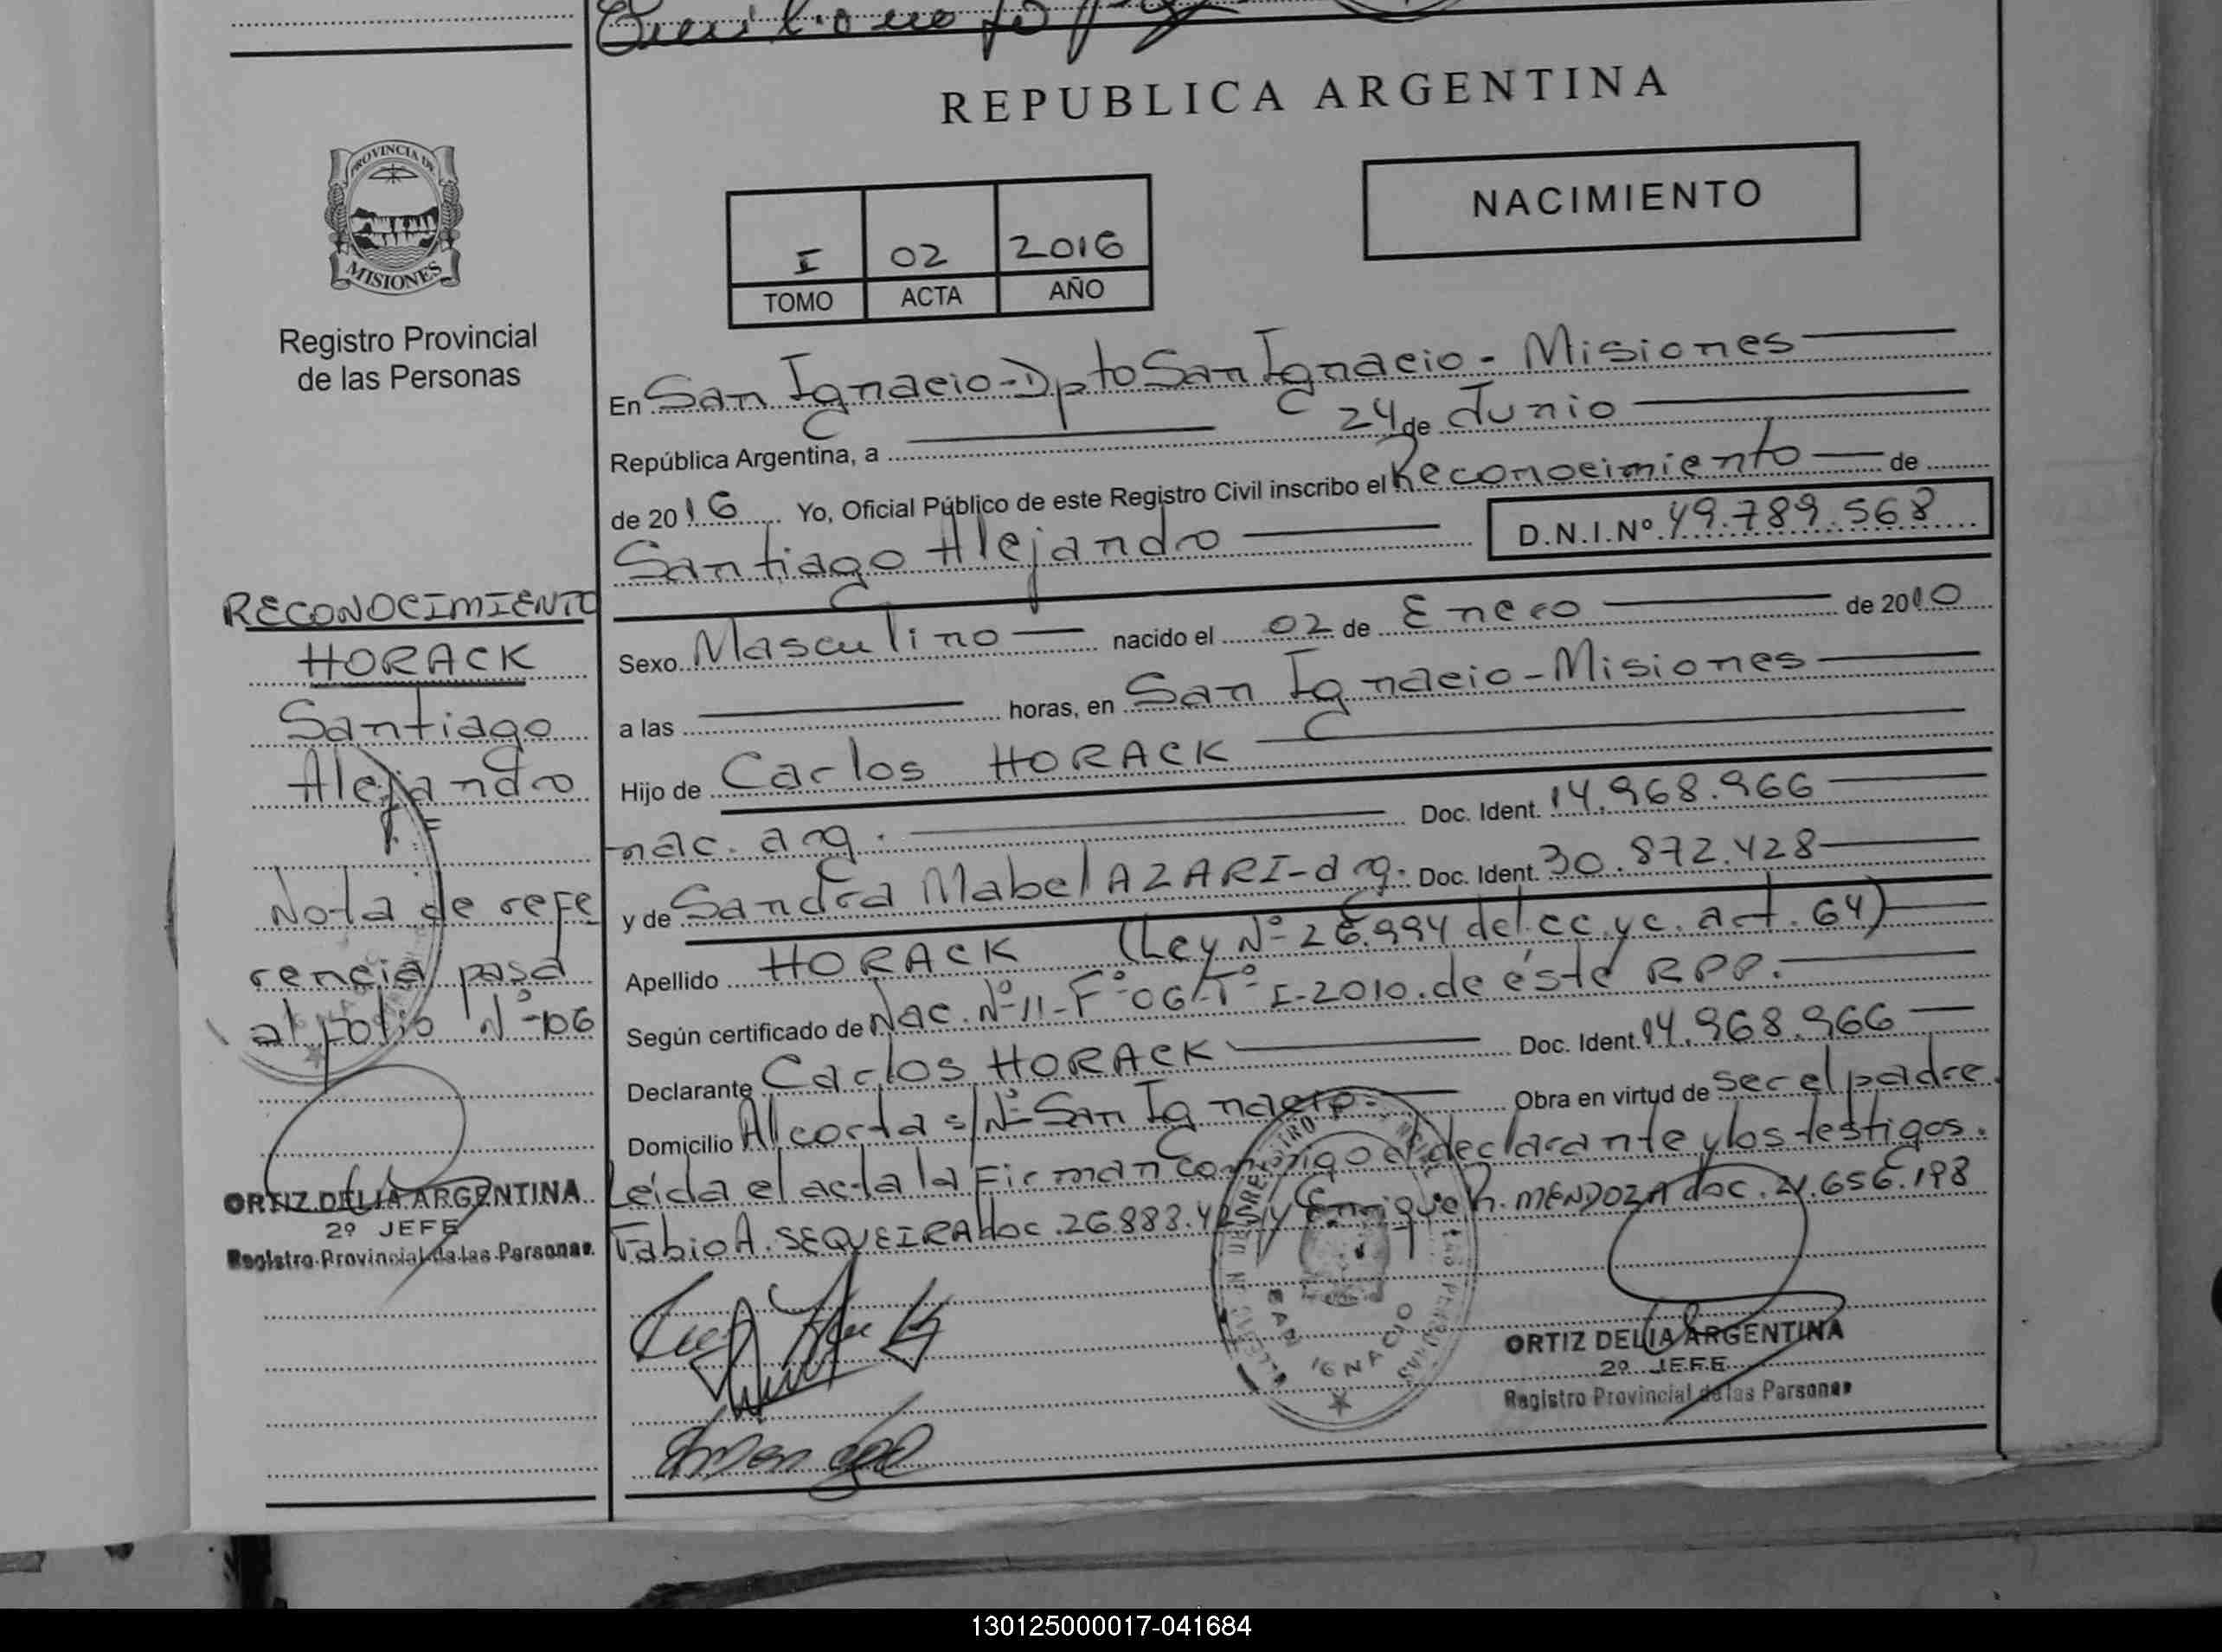 REPUBLICA ARGENTINA
PROVINCIA DE
MISIONES
Registro Provincial
de las Personas
NACIMIENTO
I 02 2016
TOMO ACTA AÑO
En San Ignacio-Dpto San Ignacio - Misiones
República Argentina, a 24 de Junio
de 2016 Yo, Oficial Público de este Registro Civil inscribo el Reconocimiento de
Santiago Alejandro D.N.I.Nº 49.789.568
Sexo Masculino nacido el 02 de Enero de 2010
a las horas, en San Ignacio-Misiones
Hijo de Carlos HORACK
nac. arg. Doc. Ident. 14.968.966
y de Sandra Mabel AZARI-arg. Doc. Ident. 30.872.428
Apellido HORACK (Ley Nº 26.994 del cc.yc. art. 64)
Según certificado de Nac. Nº11-Fº06-Tº I-2010. de éste RPP.
Declarante Carlos HORACK Doc. Ident. 14.968.966
Domicilio Alcorta s/Nº San Ignacio. Obra en virtud de ser el padre.
Leída el acta la Firman conmigo el declarante y los testigos.
Fabio A. SEQUEIRA doc. 26.883.425 y Enrique R. MENDOZA doc. 21.656.198
RECONOCIMIENTO
HORACK
Santiago
Alejandro
Nota de refe
rencia pasa
al folio Nº 106
ORTIZ DELIA ARGENTINA
2º JEFE
Registro Provincial de las Personas
SAN IGNACIO
ORTIZ DELIA ARGENTINA
2º JEFE
Registro Provincial de las Personas
130125000017-041684